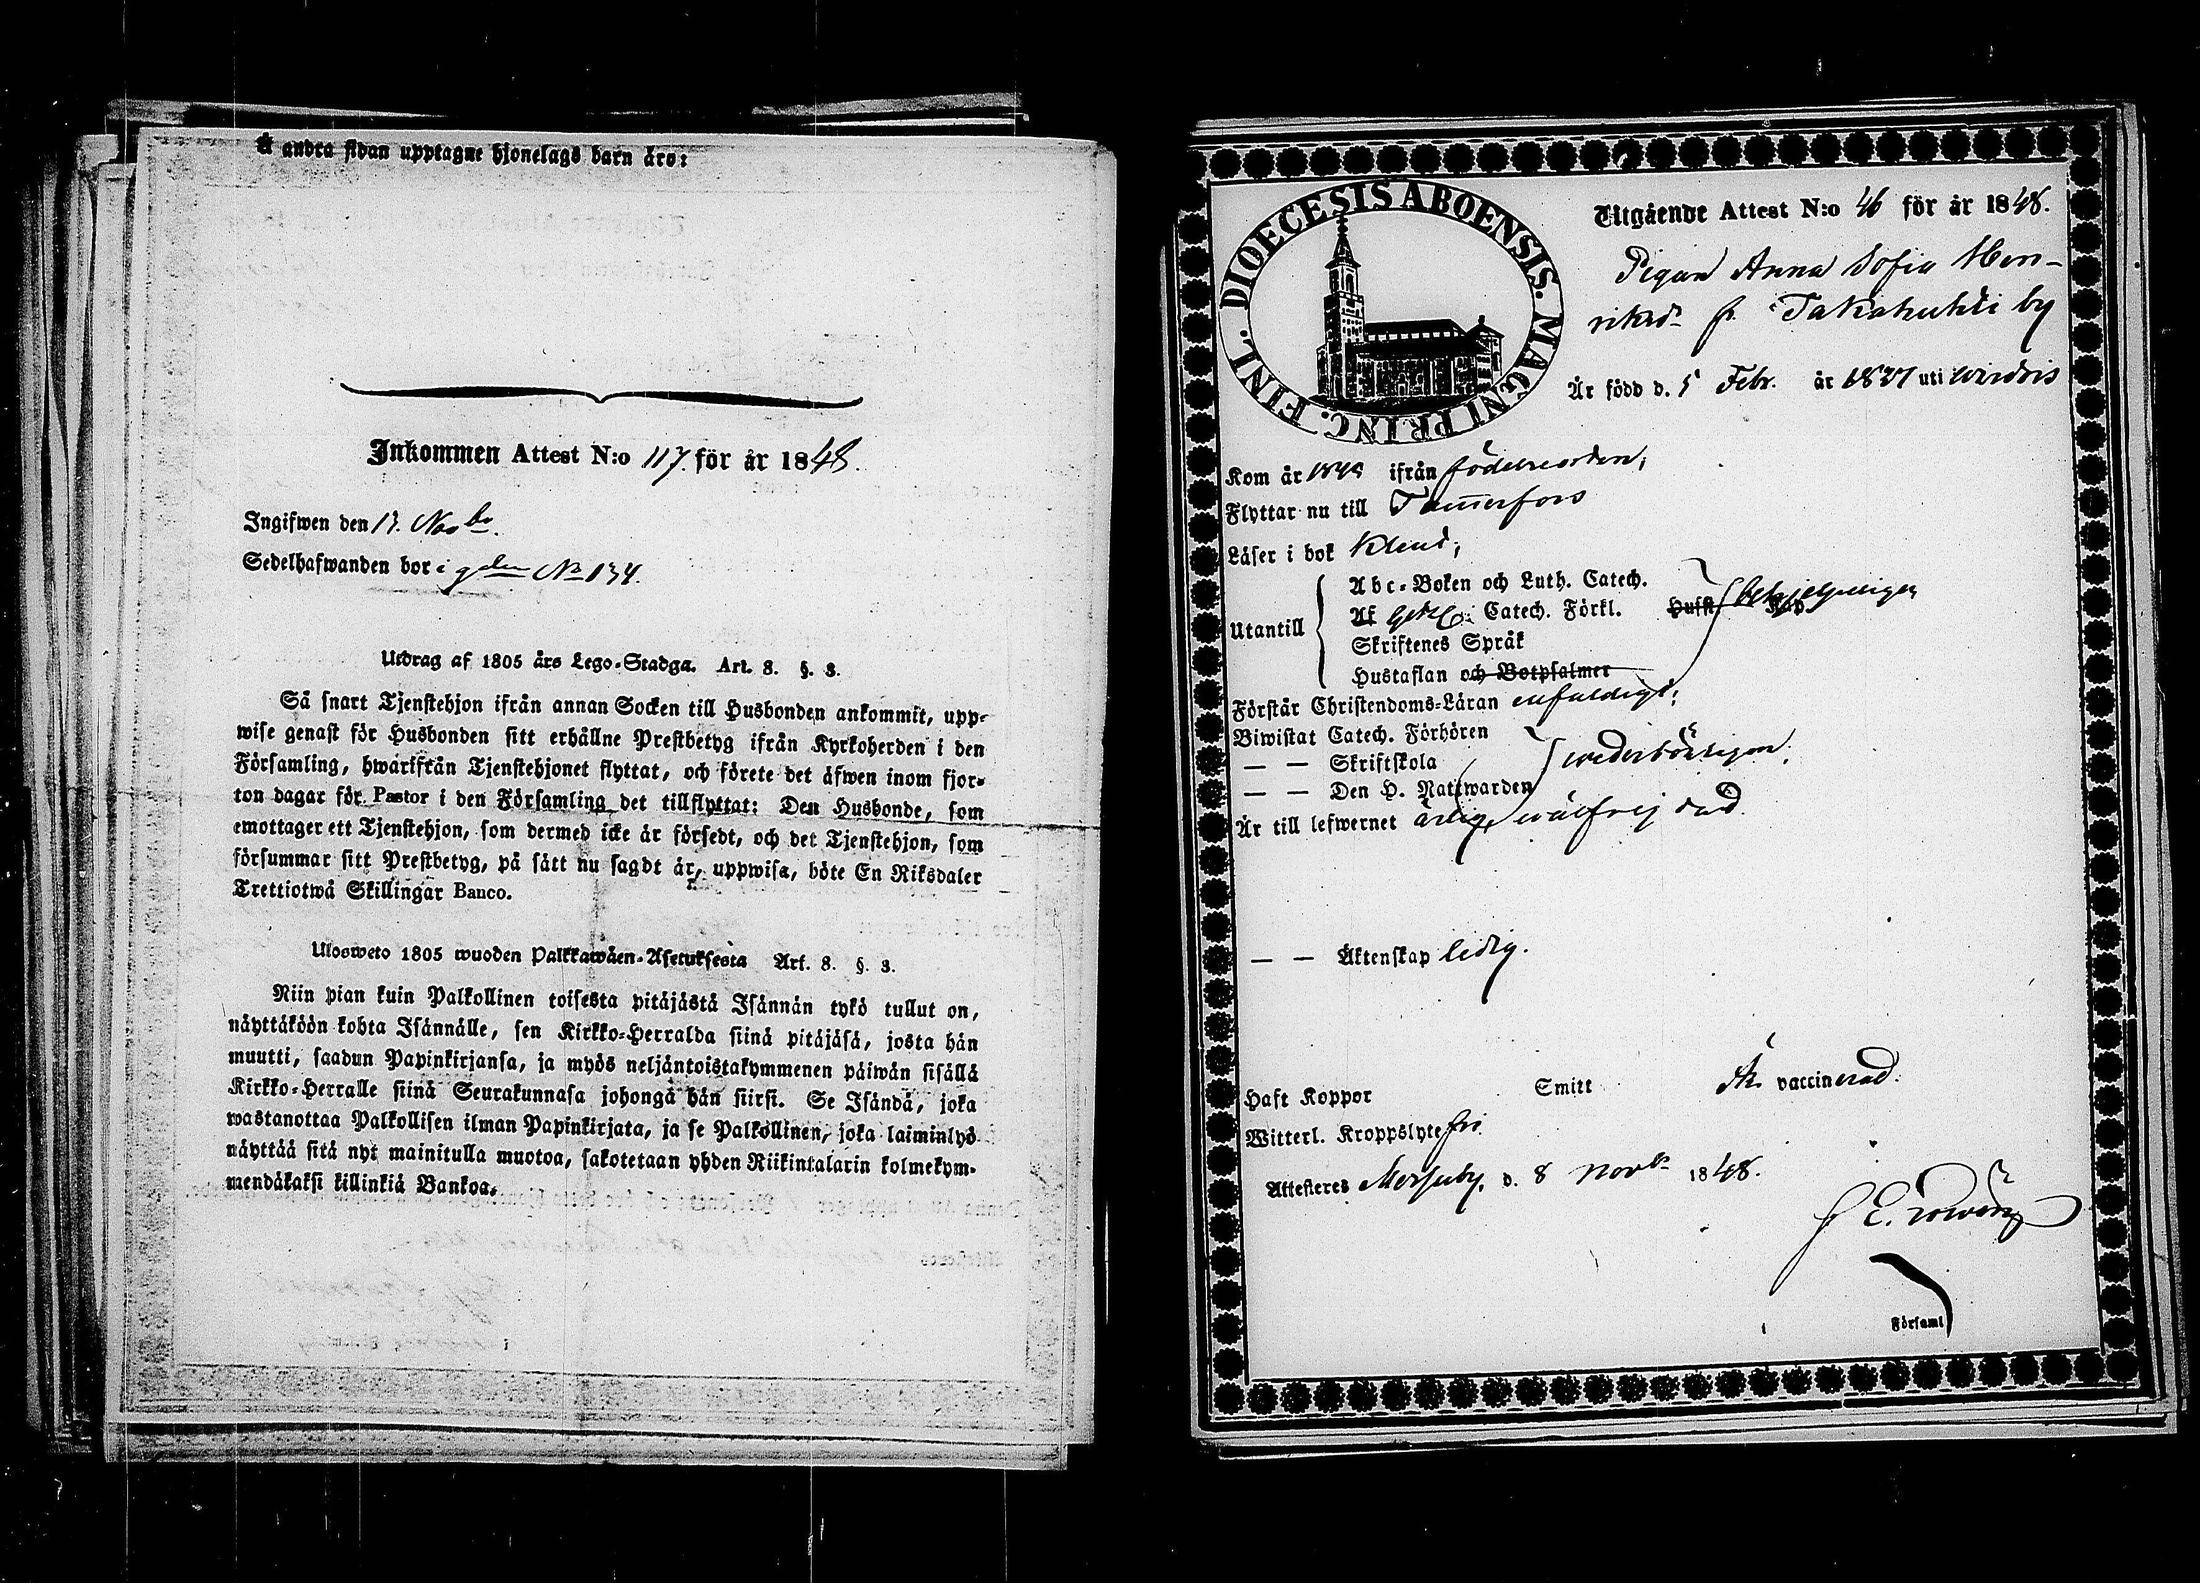 Å andra sidan upptagne hjonelags barn äro:
Inkommen Attest N:o 117. för år 1848.
Ingifwen den 13. Novbr.
Sedelhafwanden bor i gden No 134.
Utdrag af 1805 års Lego-Stadga. Art. 8. §. 3.
Så snart Tjenstehjon ifrån annan Socken till Husbonden ankommit, upp-
wise genast för Husbonden sitt erhållne Prestbetyg ifrån Kyrkoherden i den
Församling, hwarifrån Tjenstehjonet flyttat, och förete det äfwen inom fjor-
ton dagar för Pastor i den Församling det tillflyttat: Den Husbonde, som
emottager ett Tjenstehjon, som dermed icke är försedt, och det Tjenstehjon, som
försummar sitt Prestbetyg, på sätt nu sagdt är, uppwisa, böte En Riksdaler
Trettiotwå Skillingar Banco.
Ulosweto 1805 wuoden Palkkawäen-Asetuksesta Art. 8. §. 3.
Niin pian kuin Palkollinen toisesta pitäjästä Isännän tykö tullut on,
näyttäköön kohta Isännälle, sen Kirkko-Herralda siinä pitäjäsä, josta hän
muutti, saadun Papinkirjansa, ja myös neljäntoistakymmenen päiwän sisällä
Kirkko-Herralle siinä Seurakunnasa johonga hän siirsi. Se Isändä, joka
wastanottaa Palkollisen ilman Papinkirjata, ja se Palkollinen, joka laiminlyö
näyttää sitä nyt mainitulla muotoa, sakotetaan yhden Riikintalarin kolmekym-
mendäkaksi killinkiä Bankoa.
DIOECESIS ABOENSIS. MAGNI PRINC. FINL.
Utgående Attest N:o 46 för år 1848.
Pigan Anna Sofia Hen-
riksdr fr. Takahuhti by
Är född d. 5 Febr. år 1827 uti Wirdois
Kom år ifrån födelseorten;
Flyttar nu till Tam̅erfors
Läser i bok
Utantill
Abc-Boken och Luth. Catech.
Af Catech. Förkl. Hufst.
Skriftenes Språk
Hustaflan och Botpsalmer
behjelpeligen
Förstår Christendoms-Läran enfaldigt;
Biwistat Catech. Förhören
— — Skriftskola
— — Den H. Nattwarden
wederbörligen;
Är till lefwernet ärlig, wälfrejdad.
— — Äktenskap ledig.
Haft Koppor Smitt Är vaccinerad.
Witterl. Kroppslyte fri
Attesteras Messuby, d. 8 Novbr 1848.
Församl